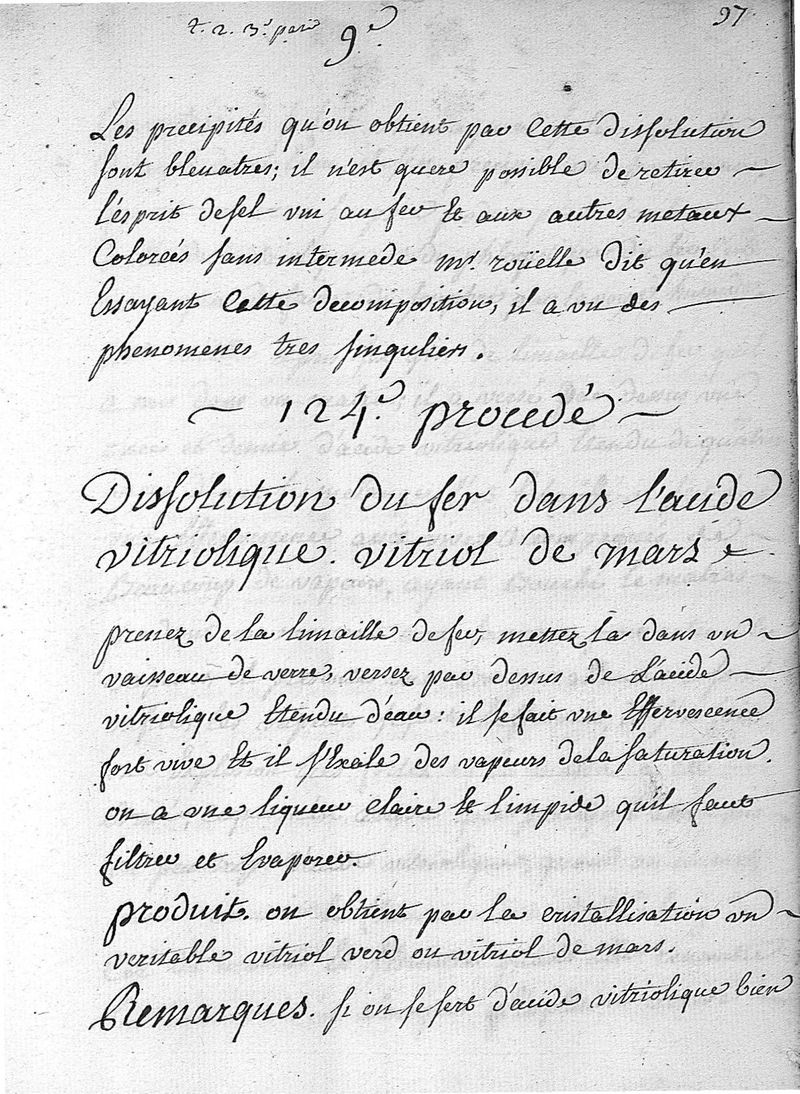 t. 2. 3e. part
9e
97.
Les precipités qu'on obtient par Cette dissolution
sont bleuatres; il n'est quere possible de retirer
l'ésprit de sel uni au fer & aux autres metaux
Coloreés sans intermede mr. roüelle dit qu'en
Essayant Cette decomposition, il a vu des
phenomenes tres singuliers.
124e. procedé
Dissolution du fer dans l'acide
vitriolique. vitriol de mars
prenez de la limaille de fer, mettez la dans un
vaisseau de verre, versez par dessus de L'acide
vitriolique Etendu d'éau: il se fait une Effervescence
fort vive Et il s'Exale des vapeurs de la saturation.
on a une liqueur claire & limpide qu'il faut
filtrer et Evaporer.
produit. on obtient par la cristallisation un
veritable vitriol verd ou vitriol de mars.
Remarques. si on se sert d'acide vitriolique bien